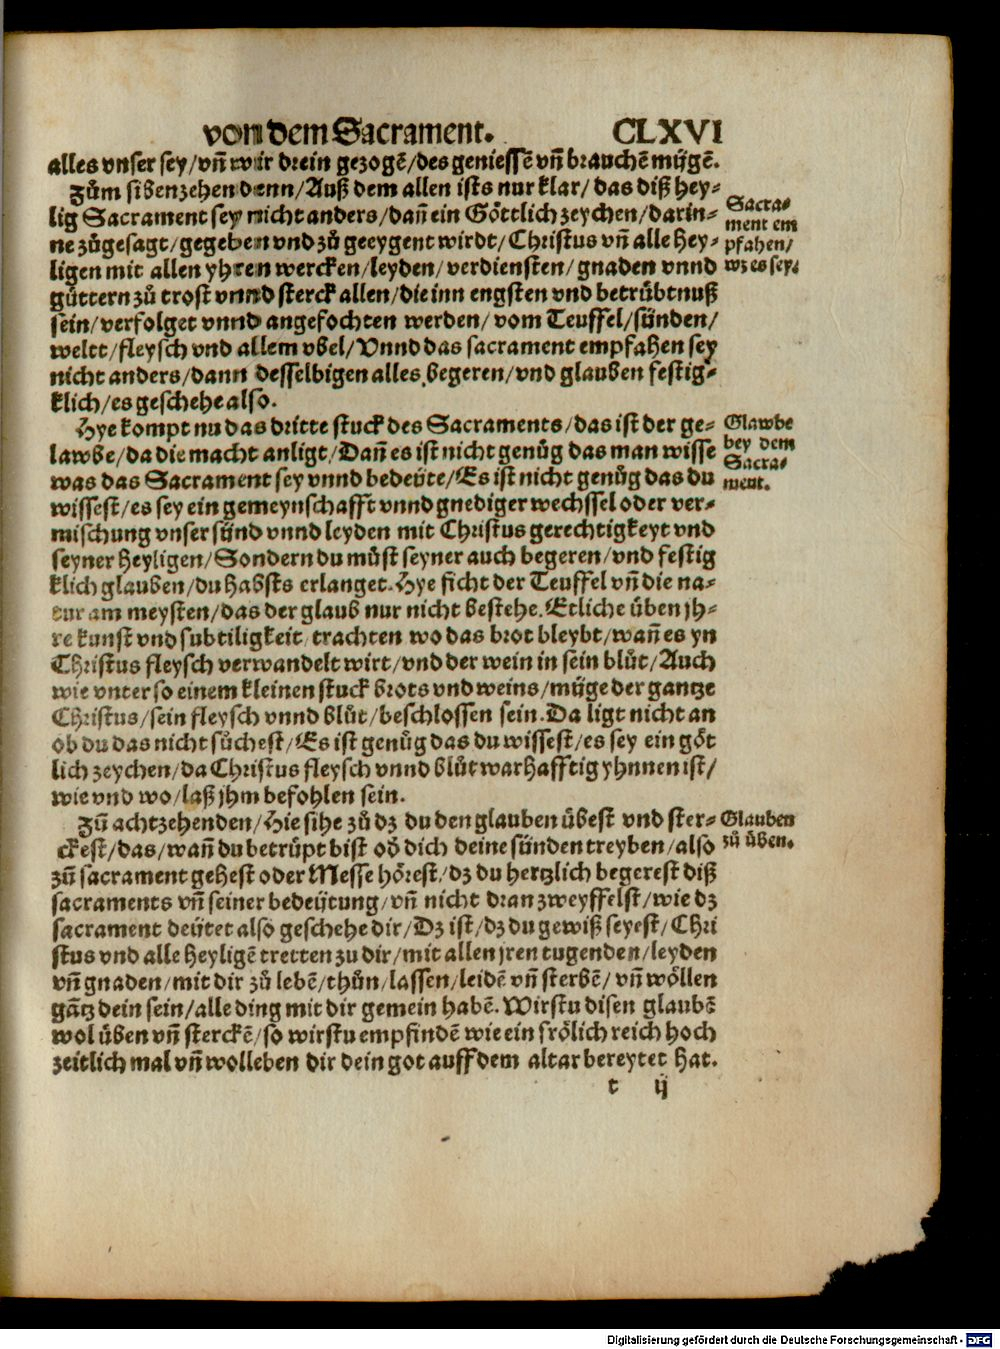 von dem Sacrament. CLXVI
alles vnser sey/vn̄ wir drein gezogē/des geniessē vn̄ brauchē mügē.
Zům sibenzehen denn/Auß dem allen ists nur klar/das diß hey⸗
lig Sacrament sey nicht anders/dan̄ ein Göttlich zeychen/darin⸗
ne zůgesagt/gegeben vnd zů geeygent wirdt/Christus vn̄ alle hey⸗
ligen mit allen yhren wercken/leyden/verdiensten/gnaden vnnd
güttern zů trost vnnd sterck allen/die inn engsten vnd betrübtnuß
sein/verfolget vnnd angefochten werden/vom Teuffel/sünden/
weltt/fleysch vnd allem vbel/Vnnd das sacrament empfahen sey
nicht anders/dann desselbigen alles begeren/vnd glauben festig⸗
klich/es geschehe also.
Sacra⸗
ment em
pfahen/
wz es sey.
Hye kompt nu das dritte stuck des Sacraments/das ist der ge⸗
lawbe/da die macht anligt/Dan̄ es ist nicht genůg das man wisse
was das Sacrament sey vnnd bedeüte/Es ist nicht genůg das du
wissest/es sey ein gemeynschafft vnnd gnediger wechssel oder ver⸗
mischung vnser sünd vnnd leyden mit Christus gerechtigkeyt vnd
seyner heyligen/Sondern du můst seyner auch begeren/vnd festig
klich glauben/du habsts erlanget. Hye ficht der Teuffel vn̄ die na⸗
tur am meysten/das der glaub nur nicht bestehe. Etliche üben jh⸗
re kunst vnd subtiligkeit/trachten wo das brot bleybt/wan̄ es yn
Christus fleysch verwandelt wirt/vnd der wein in sein blůt/Auch
wie vnter so einem kleinen stuck brots vnd weins/müge der gantze
Christus/sein fleysch vnnd blůt/beschlossen sein. Da ligt nicht an
ob du das nicht sůchest/Es ist genůg das du wissest/es sey ein göt
lich zeychen/da Christus fleysch vnnd blůt warhafftig yhnnen ist/
wie vnd wo/laß jhm befohlen sein.
Glawbe
bey dem
Sacra⸗
ment.
Zů achtzehenden/Hie sihe zů dz du den glauben übest vnd ster⸗
ckest/das/wan̄ du betrüpt bist oď dich deine sünden treyben/also
zů sacrament gehest oder Messe hörest/dz du hertzlich begerest diß
sacraments vn̄ seiner bedeütung/vn̄ nicht dran zweyffelst/wie dz
sacrament deütet also geschehe dir/Dz ist/dz du gewiß seyest/Chri
stus vnd alle heyligē tretten zu dir/mit allen jren tugenden/leyden
vn̄ gnaden/mit dir zů lebē/thůn/lassen/leidē vn̄ sterbē/vn̄ wöllen
gātz dein sein/alle ding mit dir gemein habē. Wirstu disen glaubē
wol üben vn̄ sterckē/so wirstu empfindē wie ein frölich reich hoch
zeitlich mal vn̄ wolleben dir dein got auff dem altar bereytet hat.
Glauben
zů üben.
t ij
Digitalisierung gefördert durch die Deutsche Forschungsgemeinschaft - DFG